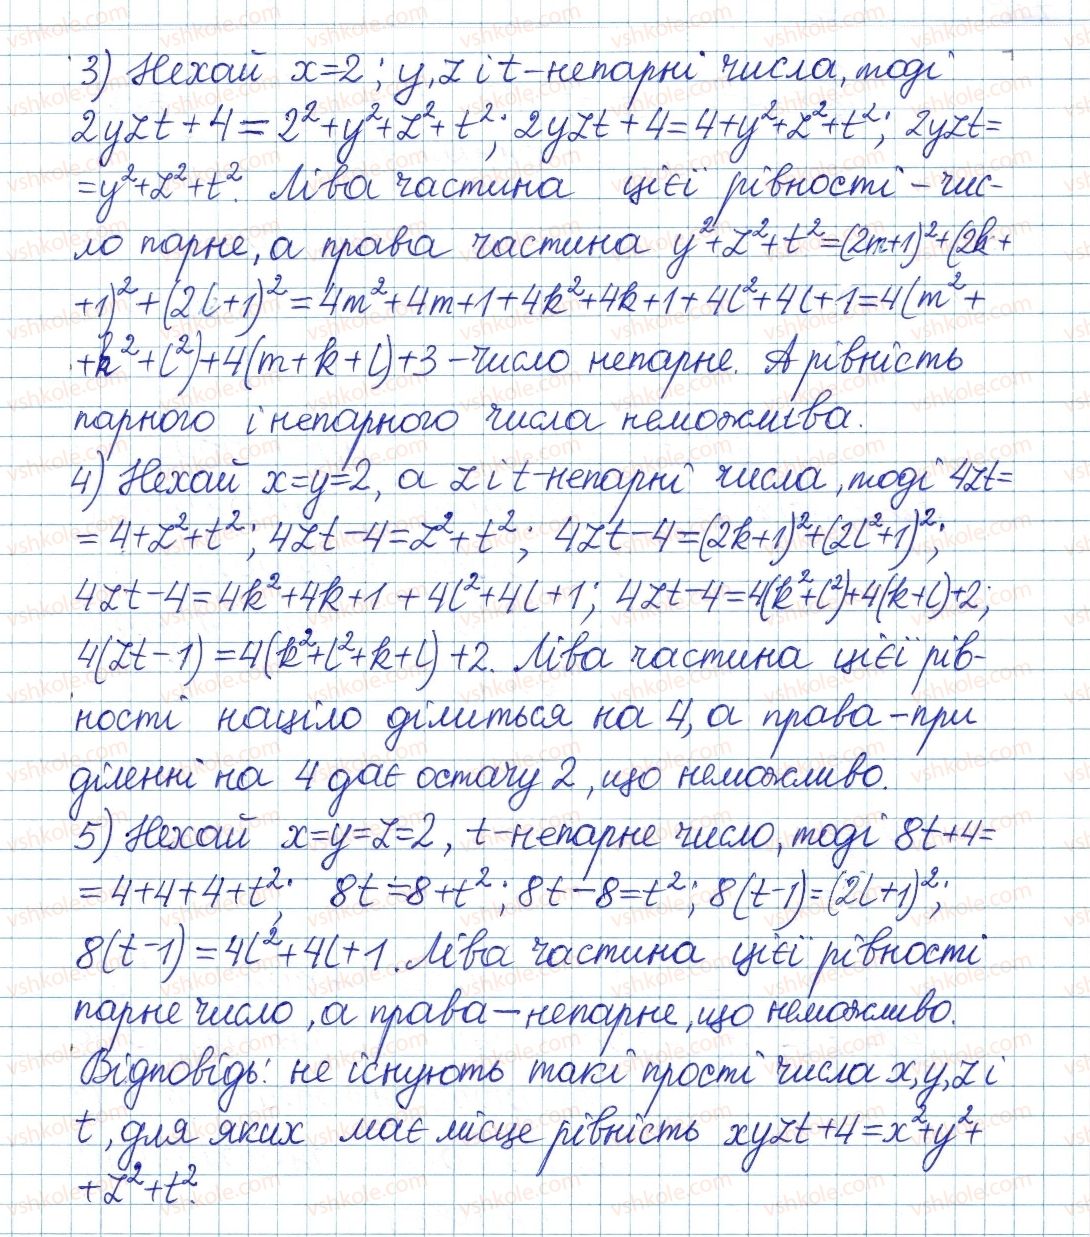 3) Нехай x=2; y, z і t – непарні числа, тоді
2yzt+4=2²+y²+z²+t²; 2yzt+4=4+y²+z²+t²; 2yzt=
=y²+z²+t². Ліва частина цієї рівності – чис-
ло парне, а права частина y²+z²+t²=(2m+1)²+(2k+
+1)²+(2l+1)²=4m²+4m+1+4k²+4k+1+4l²+4l+1=4(m²+
+k²+l²)+4(m+k+l)+3 – число непарне. А рівність
парного і непарного числа неможлива.
4) Нехай x=y=2, а z і t – непарні числа, тоді 4zt=
=4+z²+t²; 4zt-4=z²+t²; 4zt-4=(2k+1)²+(2l²+1)²;
4zt-4=4k²+4k+1+4l²+4l+1; 4zt-4=4(k²+l²)+4(k+l)+2;
4(zt-1)=4(k²+l²+k+l)+2. Ліва частина цієї рів-
ності націло ділиться на 4, а права – при
діленні на 4 дає остачу 2, що неможливо.
5) Нехай x=y=z=2, t – непарне число, тоді 8t+4=
=4+4+4+t²; 8t=8+t²; 8t-8=t²; 8(t-1)=(2l+1)²;
8(t-1)=4l²+4l+1. Ліва частина цієї рівності
парне число, а права – непарне, що неможливо.
Відповідь: не існують такі прості числа x, y, z і
t, для яких має місце рівність xyzt+4=x²+y²+
+z²+t².